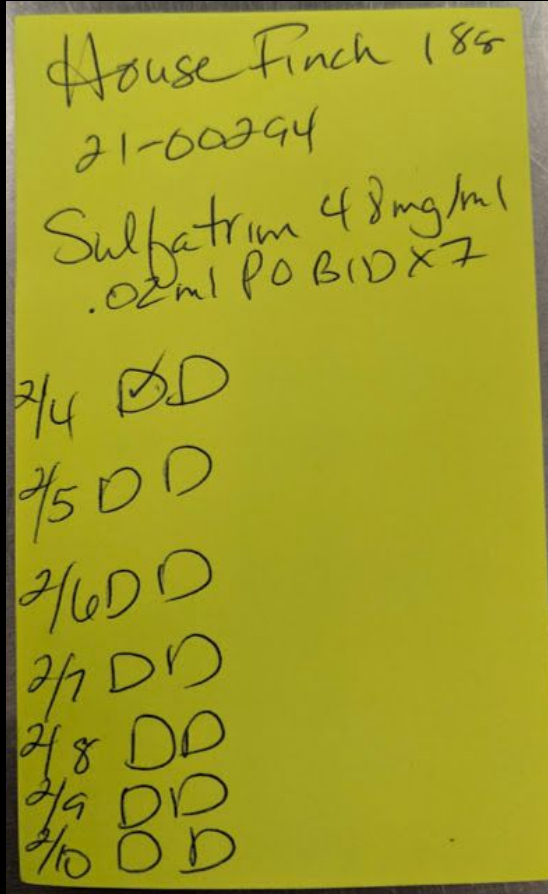 House Finch 18g
21-00294
Sulfatrim 48mg/ml
.02ml PO BID x 7
2/4 ☑ D
2/5 D D
2/6 D D
2/7 D D
2/8 D D
2/9 D D
2/10 D D